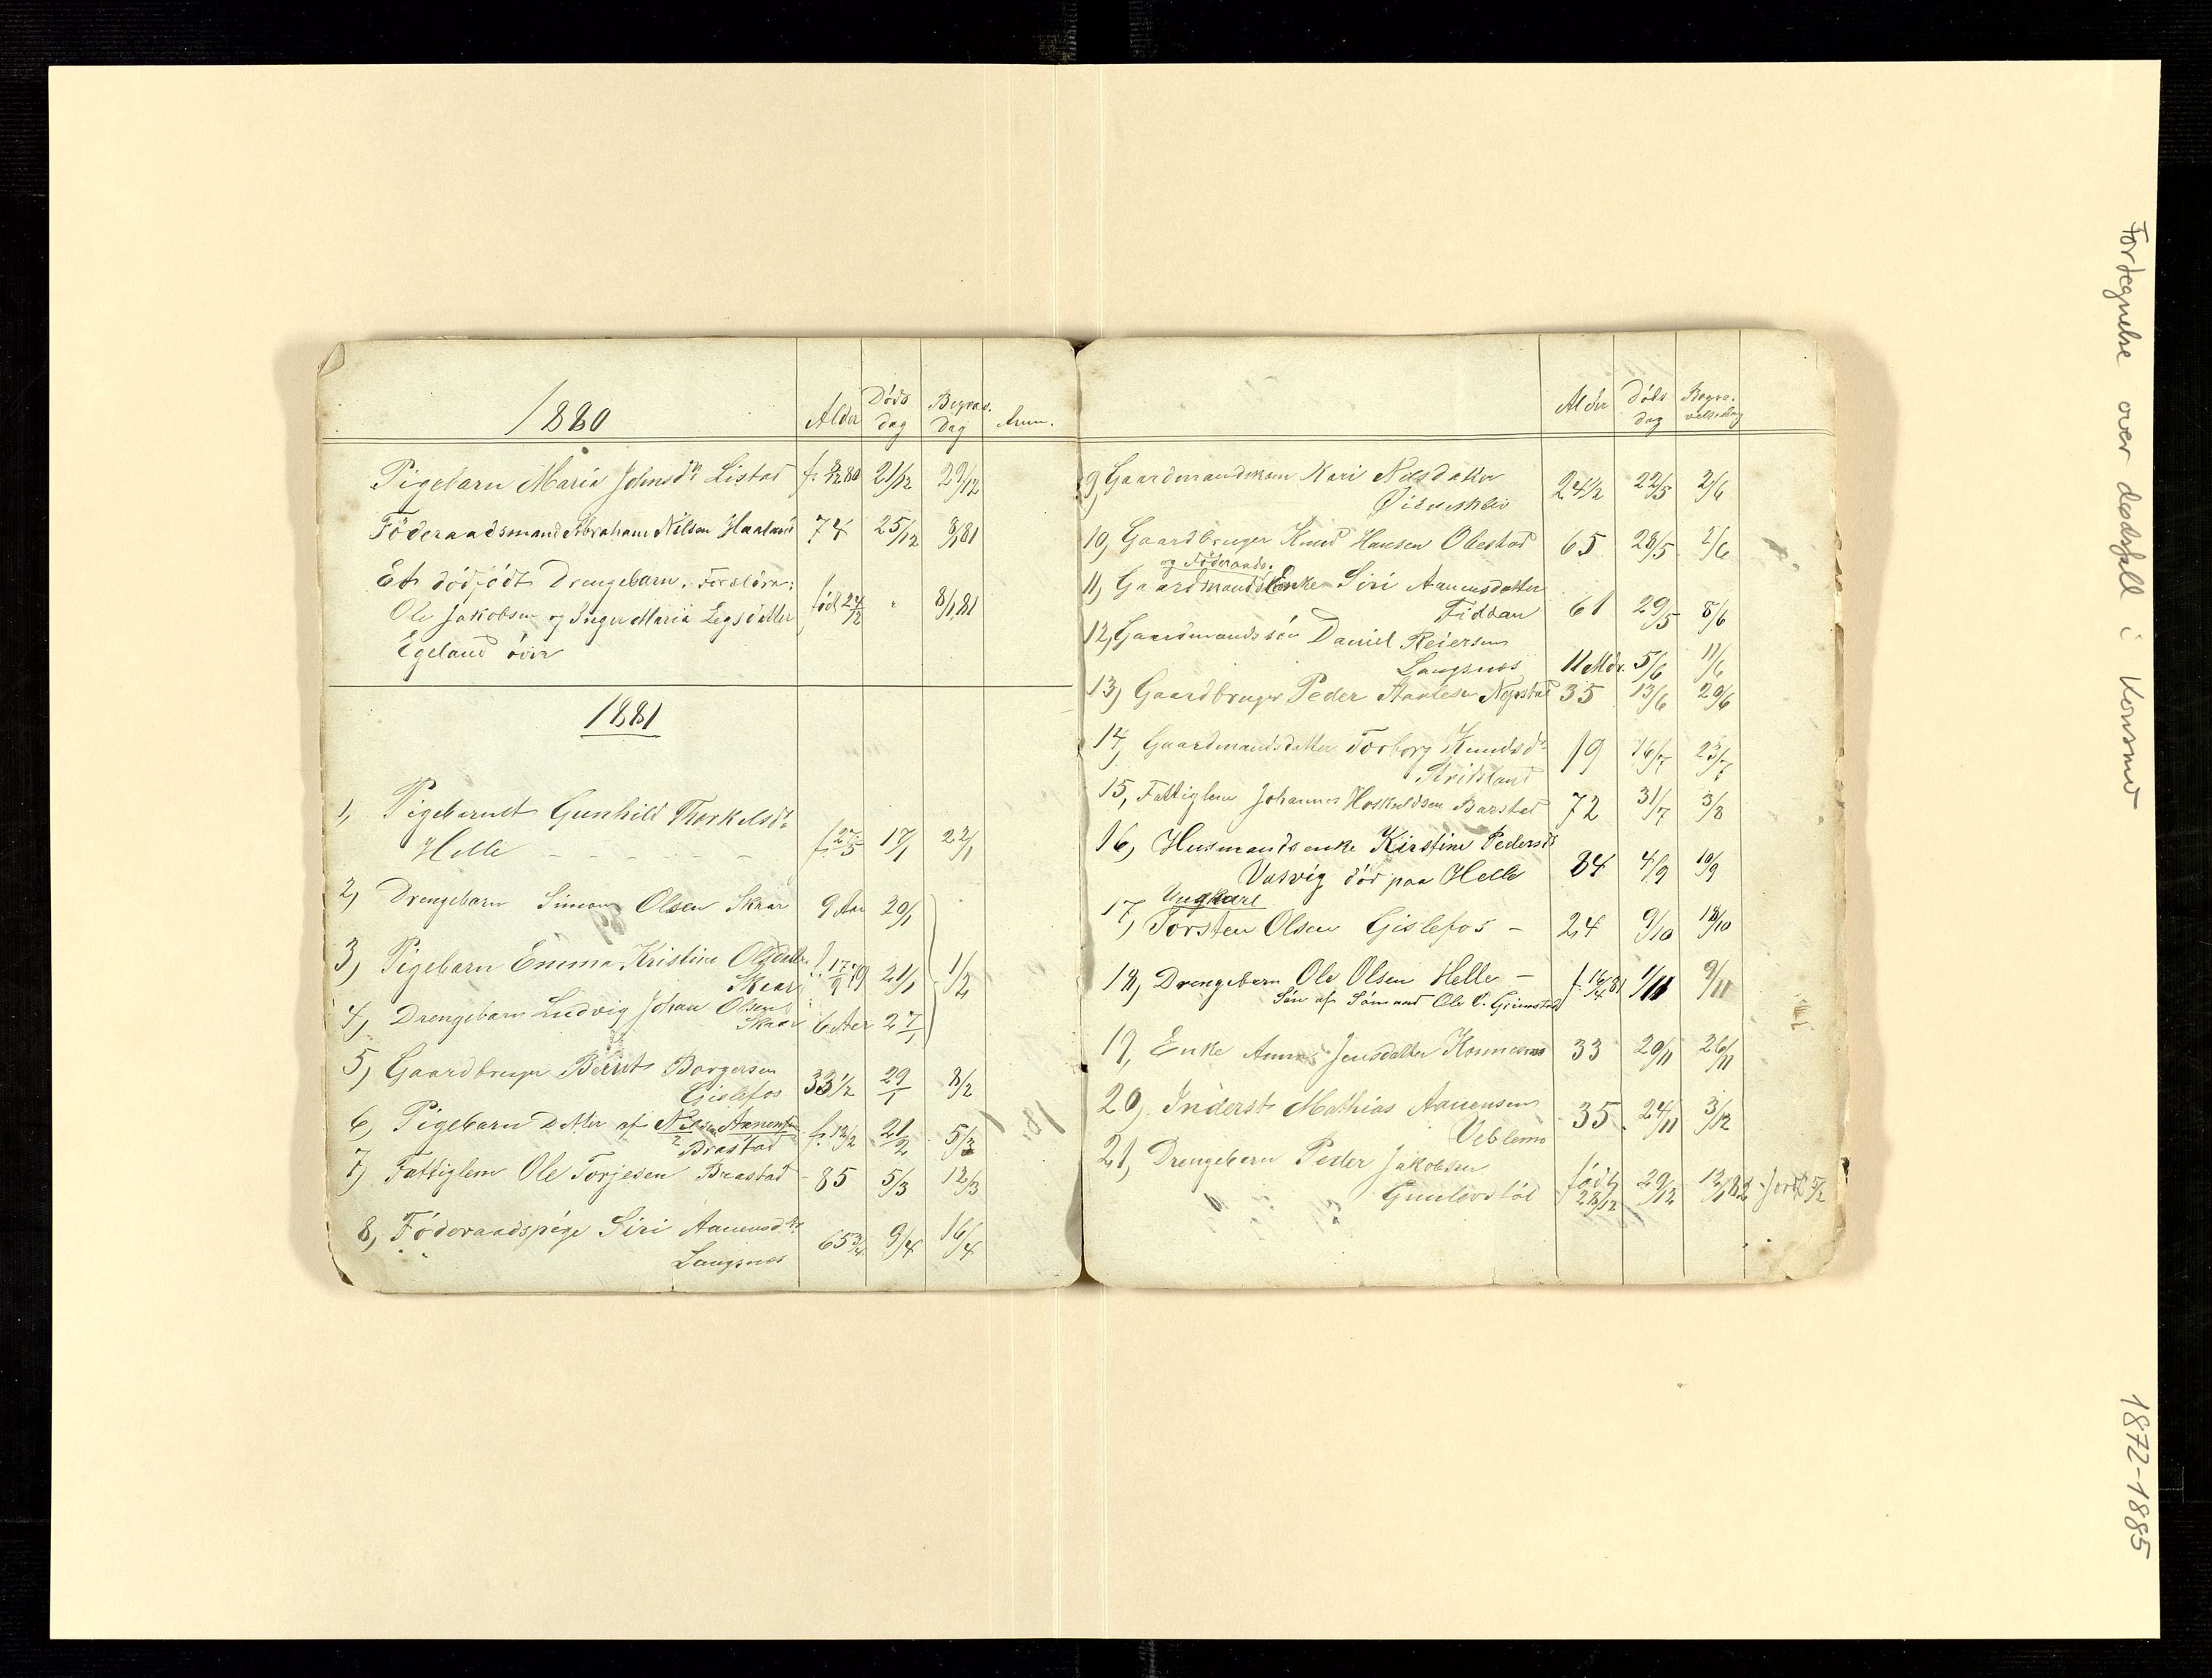 1880 Alder Döds dag Begrav. Dag Anm.
Pigebarn Maria Johnsdr Listad f. 8/12 80 21/12 29/12
Föderaadsmand Abraham Nilsen Haaland 74 25/12 8/1 81
Et dödfödt Drengebarn. Forældre:
Ole Jakobsen og Inger Maria Legsdatter födt 24/12 " 8/1 81
Egeland övre
1881
1, Pigebarnet Gunhild Thorkelsdr
Helle f. 27/5 17/1 22/1
2, Drengebarn Simon Olsen Skaar 9 Aar 20/1
3, Pigebarn Emma Kristine Olsdatter
Skaar f. 17/9 79 21/1 1/2
4, Drengebarn Ludvig Johan Olsen
Skaar 6 Aar 27/1
5, Gaardbruger Berint Borgersen
Gislefos 33 1/2 29/1 8/2
6, Pigebarn Datter af Nils Aanensen
Brastad f. 12/2 21/2 5/3
7, Fattiglem Ole Torjesen Brastad 85 5/3 12/3
8, Föderaadspige Siri Aanensdtr
Laugsnes 65 3/4 9/4 16/4
Alder Döds dag Begravelsedag
9, Gaardmandskone Kari Nilsdatter
24 1/2 22/5 2/6
10, Gaardbruger Knud Hansen Obestad 65 28/5 2/6
og Föderaads.
11, Gaardmands Enke Siri Aanensdatter
Fiddan 61 29/5 8/6
12, Gaardmandssön Daniel Reiersen
Laugsnes 11 Mdr. 5/6 11/6
13, Gaardbruger Peder Aanesen Nepstad 35 13/6 20/6
14, Gaardmandsdatter Torborg Knudsdr
Stridsland 19 16/7 23/7
15, Fattiglem Johannes Hoskuldsen Barstad 72 31/7 3/8
16, Husmandsenke Kirstine Pedersdr
Vasvig död paa Helle 84 4/9 10/9
Ungkarl
17, Torsten Olsen Gislefos - 24 9/10 18/10
18, Drengebarn Ole Olsen Helle - f. 16/4 81 1/11 9/11
Sön af Sömand Ole O. Grimstad
19, Enke Anne Jensdatter Konnesmo 33 20/11 26/11
20, Inderst Mathias Aanensen
Veblemo 35 24/11 3/12
21, Drengebarn Peder Jakobsen
Gunlevstöl födt 28/12 29/12 12/1 82 Jordf. 5/2
Fortegnelse over dødsfall i Konsmo
1872-1885